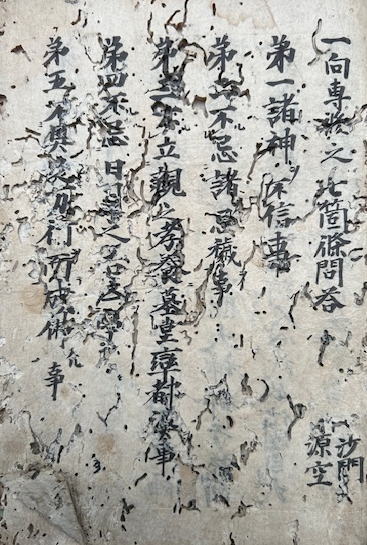 一向専修之七箇條問答
沙門
源空
第一諸神不信事
第二不忌諸悪穢事
第三不立親之孝養墓堂事
第四不忌日之事
第五不行所成佛事